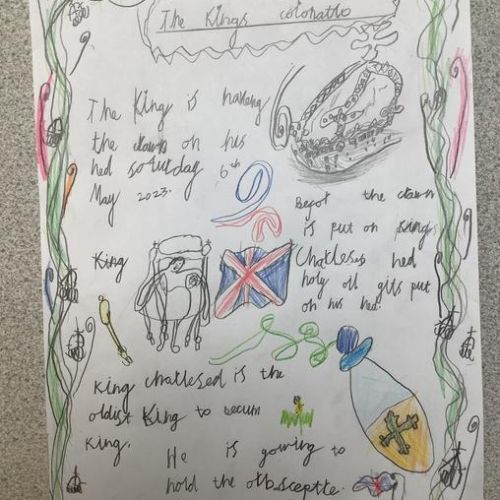 The Kings coronatto
The King is haveng
the clawn on his
hed soturday 6th
May 2023.
Befor the clawn
is put on Kings
Charleses hed
holy oil gits put
on his hed.
King
King charlesed is the
oldist King to becum
King.
He is gowing to
hold the orb sceptte.